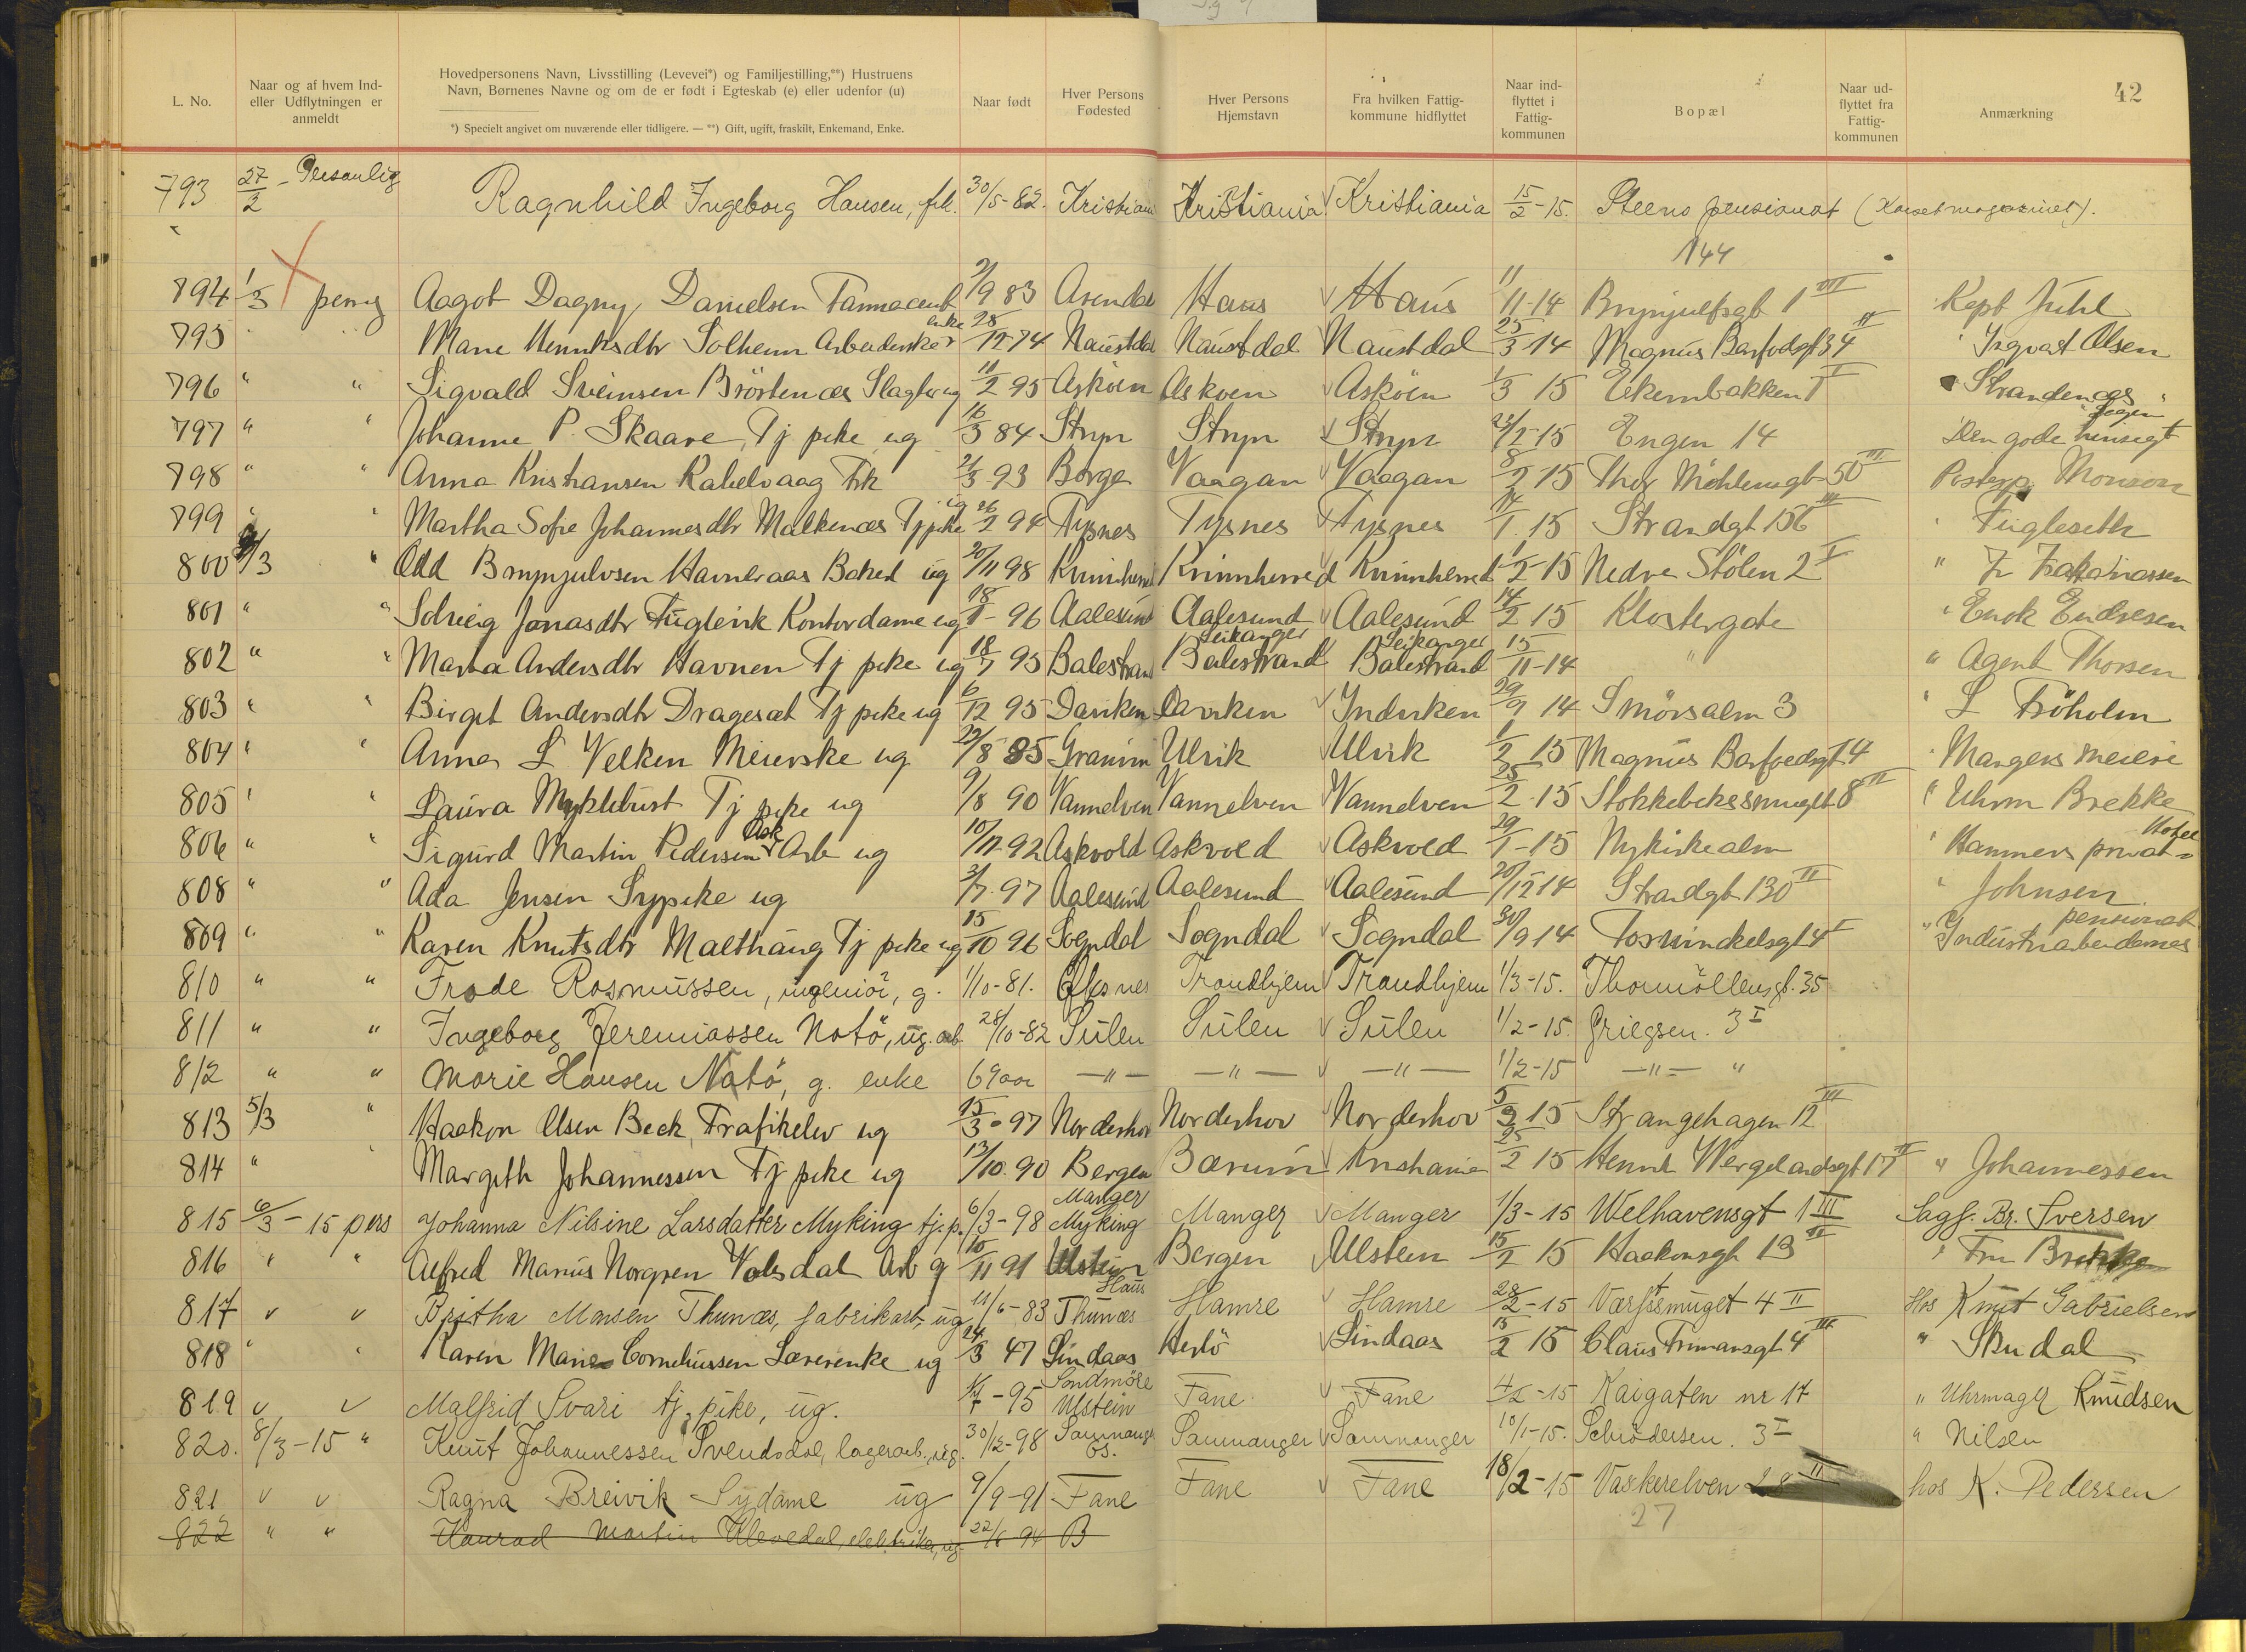 42
L. No. Naar og af hvem Ind- eller Udflytningen er anmeldt Hovedpersonens Navn, Livsstilling (Levevei*) og Familjestilling,**) Hustruens Navn, Børnenes Navne og om de er født i Egteskab (e) eller udenfor (u) Naar født Hver Persons Fødested Hver Persons Hjemstavn Fra hvilken Fattig- kommune hidflyttet Naar ind- flyttet i Fattig- kommunen Bopæl Naar ud- flyttet fra Fattig- kommunen Anmærkning
*) Specielt angivet om nuværende eller tidligere. — **) Gift, ugift, fraskilt, Enkemand, Enke.
793 27/2 - Personlig Ragnhild Ingeborg Hansen, frk. 30/5-82. Kristiania Kristiania Kristiania 15/2-15. Steens pensionat (Korsetmagasinet).
144
794 1/3 Aagot Dagny Danielsen 9/9 83 Arendal Haus Haus 11/11-14 Brynjulfsgt 1 III Kapt Juhl
795 " " Marie Henriksdtr Solheim Arbeiderske enke 28/12-74 Naustdal Naustdal Naustdal 25/3 14 Magnus Barfodsgt 34 II " Ingvat Olsen
796 " " Sigvald Sveinsen Slagter ug 11/2 95 Askøen Askøen Askøen 1/3 15 Ekernbakken 1 I Strandenæs
797 " " Johanne P. Skaare, Tj pike ug 16/3 84 Stryn Stryn Stryn 23/2-15 Engen 14 Den gode hensigt
798 " " Anna Kristiansen Kabelvaag Frk 21/3 93 Borge Vaagan Vaagan 8/2 15 Thor Möhlensgt 50 III Monson
799 " " Martha Sofie Johannesdtr Malkenæs Tj pike ug 26/2 94 Tysnes Tysnes Tysnes 14/1 15 Strandgt 156 III " Fugleseth
800 /3 " Odd Brynjulvsen Havneraas ug 20/11 98 Kvinnherred Kvinnherred Kvinnherred 1/2-15 Nedre Stölen 2 I "
801 " " Solveig Jonasdtr Fuglevik Kontordame ug 18/1-96 Aalesund Aalesund Aalesund 14/2 15 Klostergate " Enok Endresen
802 " " Marta Andersdtr Havnen Tj pike ug 18/7 95 Balestrand Leikanger Balestrand Leikanger Balestrand 15/11-14 " " Agent Thorsen
803 " " Birgit Andersdtr Dragesæt Tj pike ug 6/12 95 Daviken Daviken Indviken 29/9 14 Smörsalm 3 " L Fröholm
804 " " Anna L Velken Meierske ug 22/8 85 Granvin Ulvik Ulvik 1/2 15 Magnus Barfoedsgt 4 " Mangers meieri
805 " " Laura Myklebust Tj pike ug 9/8 90 Vannelven Vannelven Vannelven 25/2-15 Stokkebekssmuget 8 II " Uhrm Brekke
806 " " Sigurd Martin Pedersen Ask Arb ug 10/11-92 Askvold Askvold Askvold 29/1-15 Nykirkealm " Hammers privat= Hotel
808 " " Ada Jensen Sypike ug 3/7-97 Aalesund Aalesund Aalesund 20/12 14 Strandgt 130 II " Johnsen
809 " " Karen Knutsdtr Malthaug Tj pike ug 15/10 96 Sogndal Sogndal Sogndal 30/9 14 Torvinckelsgt 4 I " Industriarbeidernes pensionat
810 " " Frode Rasmussen, ingeniör, g. 1/10-81. Øksnes Trondhjem Trondhjem 1/3-15. Thormöllensgt. 35
811 " " Ingeborg Jeremiassen Notö, ug. arb 28/10-82 Sulen Sulen Sulen 1/2-15. Griegsm. 3 I
812 " " Marie Hansen Notö, g. enke 69 aar —"— —"— —"— 1/2-15 —"— "
813 5/3 " Haakon Olsen Beck, Trafikelev ug 15/3-97 Norderhov Norderhov Norderhov 5/3 15 Strangehagen 12 III
814 " " Margith Johannessen Tj pike ug 13/10-90 Bergen Bærum Kristiania 25/2 15 Henrik Wergelandsgt 17 II " Johannessen
815 6/3-15 pers Johanna Nilsine Larsdatter Myking tj.p. 6/3-98 Manger Myking Manger Manger 1/3-15 Welhavensgt 1 III Sagf. Br. Iversen
816 " " Alfred Marius Norgren Valsdal Arb g 10/11 91 Ulstein Bergen Ulstein 15/2 15 Haakonsgt 13 III " Fru Brekke
817 v v Britha Monsen Thunæs, fabrikarb, ug 11/6-83 Haus Thunæs Hamre Hamre 28/2-15 Værftsmuget 4 II Hos Knut Gabrielsen
818 " " Karen Marie Corneliussen Lærerenke ug 24/3 47 Lindaas Herlö Lindaas 15/2 15 Claus Frimansgt 4 III " Skudal
819 v v Malfrid Svari tj. pike, ug. -95 Søndmöre Ulstein Fane Fane 4/2-15 Kaigaten nr 17 " Uhrmager Knudsen
820. 8/3-15 " Knut Johannessen Svendsdal, lagerarb., ug. 30/12-98 Samnanger Os. Samnanger Samnanger 10/1-15. Schrödersm. 3 I " Nilsen
821 v v Ragna Breivik Sydame ug 9/9-91 Fane Fane Fane 18/2-15 Vaskerelven 28 II hos K. Pedersen
27
822 " " Konrad Martin Klevedal, elektriker, ug. 22/6 94 B